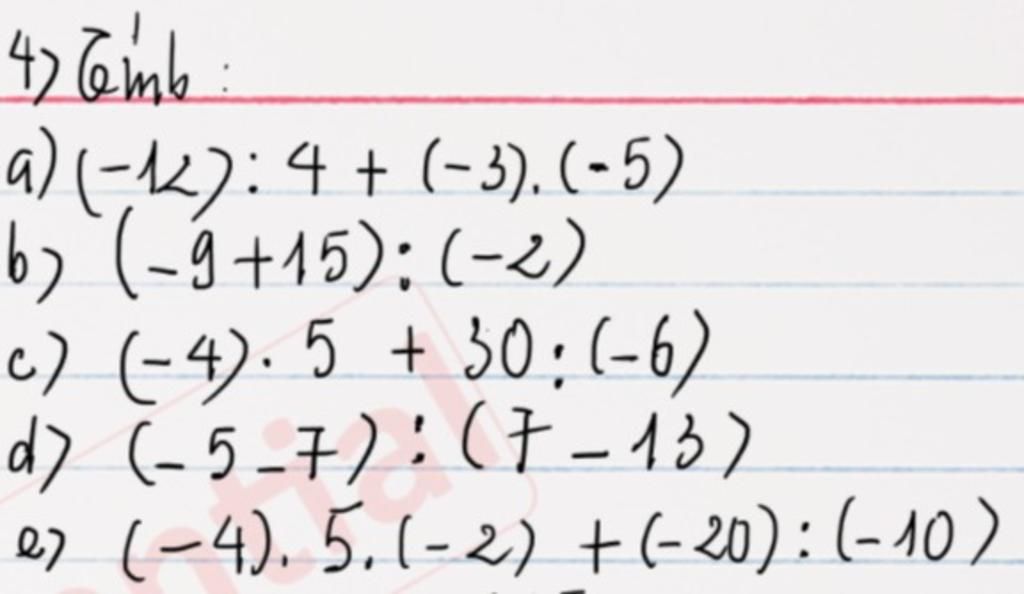 4) Tính :
a) (-12) : 4 + (-3) . (-5)
b) (-9 + 15) : (-2)
c) (-4) . 5 + 30 : (-6)
d) (-5 - 7) : (7 - 13)
e) (-4) . 5 . (-2) + (-20) : (-10)